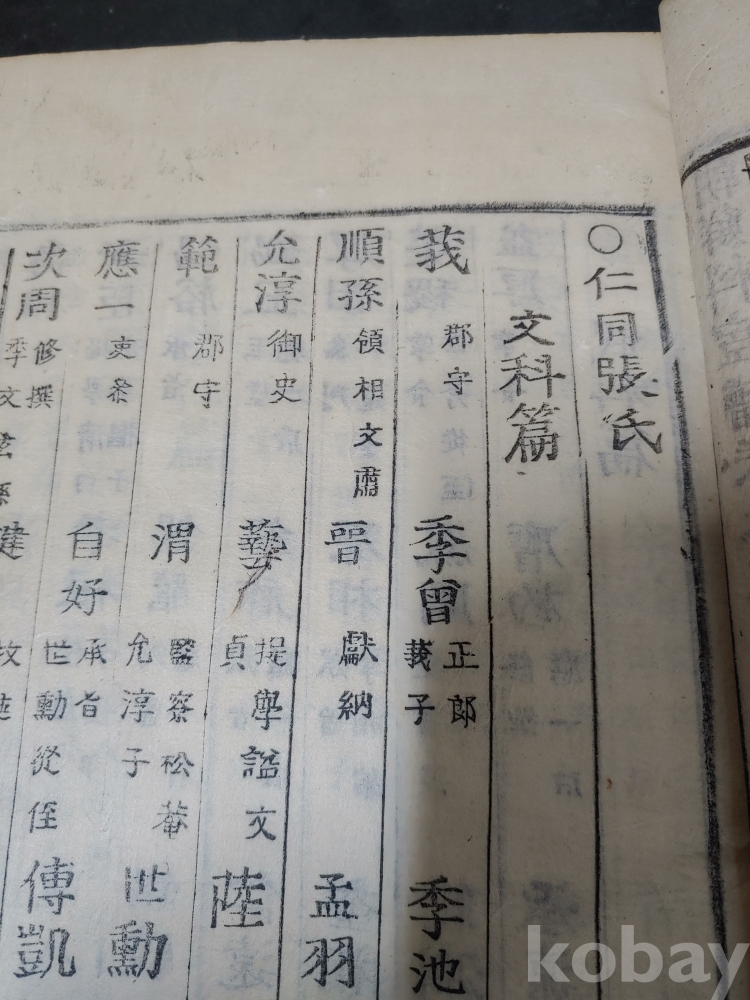 ○仁同張氏
文科篇
莪 郡守 季曾 正郎 莪子 季池
順孫 領相文肅 晉 獻納 孟羽
允淳 御史 藝 提學謚文貞 陸
範 郡守 渭 監察松菴 允淳子 世勳
應一 吏參 自好 承旨 世勳從侄 傳凱
次周 修撰 季文玄孫
kobay